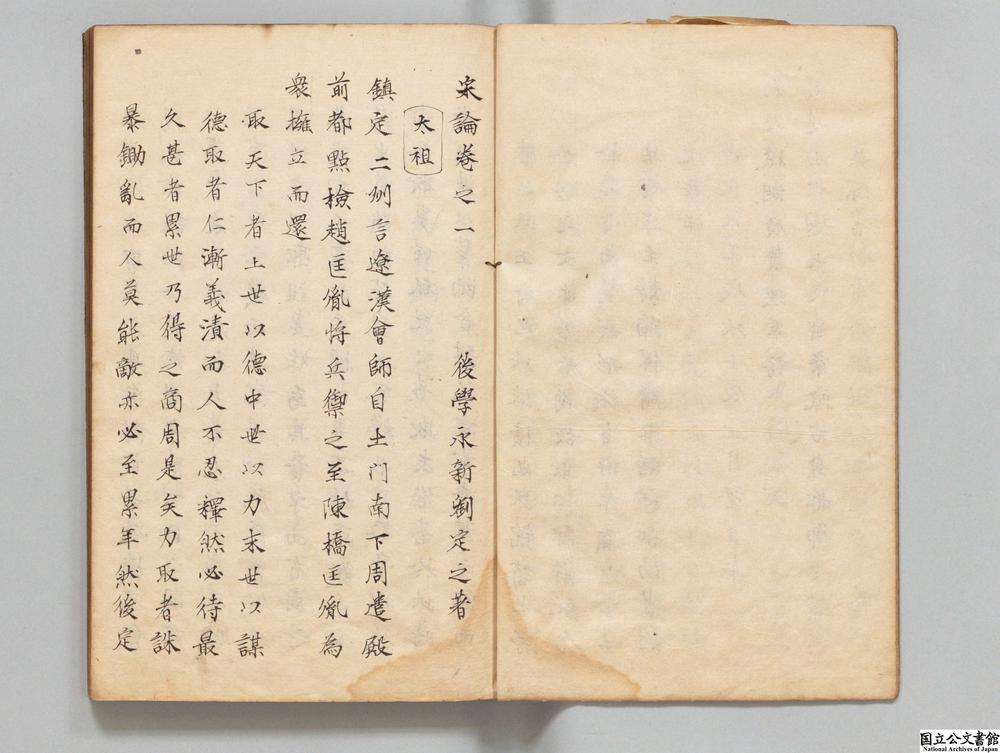 宋論卷之一　後學永新劉定之著
太祖
鎮定二州言遼漢會師自土門南下周遣殿
前都點檢趙匡胤將兵禦之至陳橋匡胤為
衆擁立而還
取天下者上世以德中世以力末世以謀
德取者仁漸義漬而人不忍釋然必待最
久甚者累世乃得之商周是矣力取者誅
暴鋤亂而人莫能敵亦必至累年然後定
国立公文書館
National Archives of Japan